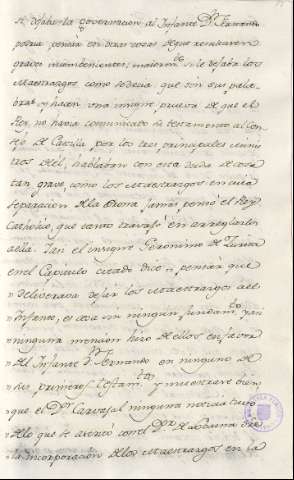 se dejaba la governacion al Infante Dn. Fernando
podria poner en otras cosas de que resultaren
graves inconvenientes; mayormte. si le dejaba los
Maestrazgos como se decia, que son sus pala-
bras y hacen una insigne prueba de que el
Rey no havia comunicado su testamento al Con-
sejo de Castilla por los tres principales minis-
tros del, hablaban con esta duda de cosa
tan grave, como los Maestrazgos en cuia
separacion de la Corona jamas penso el Rey
Catholico, que tanto travajó en arreglarlos
a ella. Y an el insigne Geronimo de Zurita
en el Capitulo citado dice: pensar que
deliverava dejar los Maestrazgos a el
Infante, es cosa sin ningun fundamto. y sin
ninguna mencion hizo de ellos en favor
del Infante Dn. Fernando en ninguno de
sus primeros testamtos. y muestrase bien
que el Dr. Carvajal ninguna noticia tubo
de lo que se asentó con el Papa
la incorporacion de los Maestrazgos en la